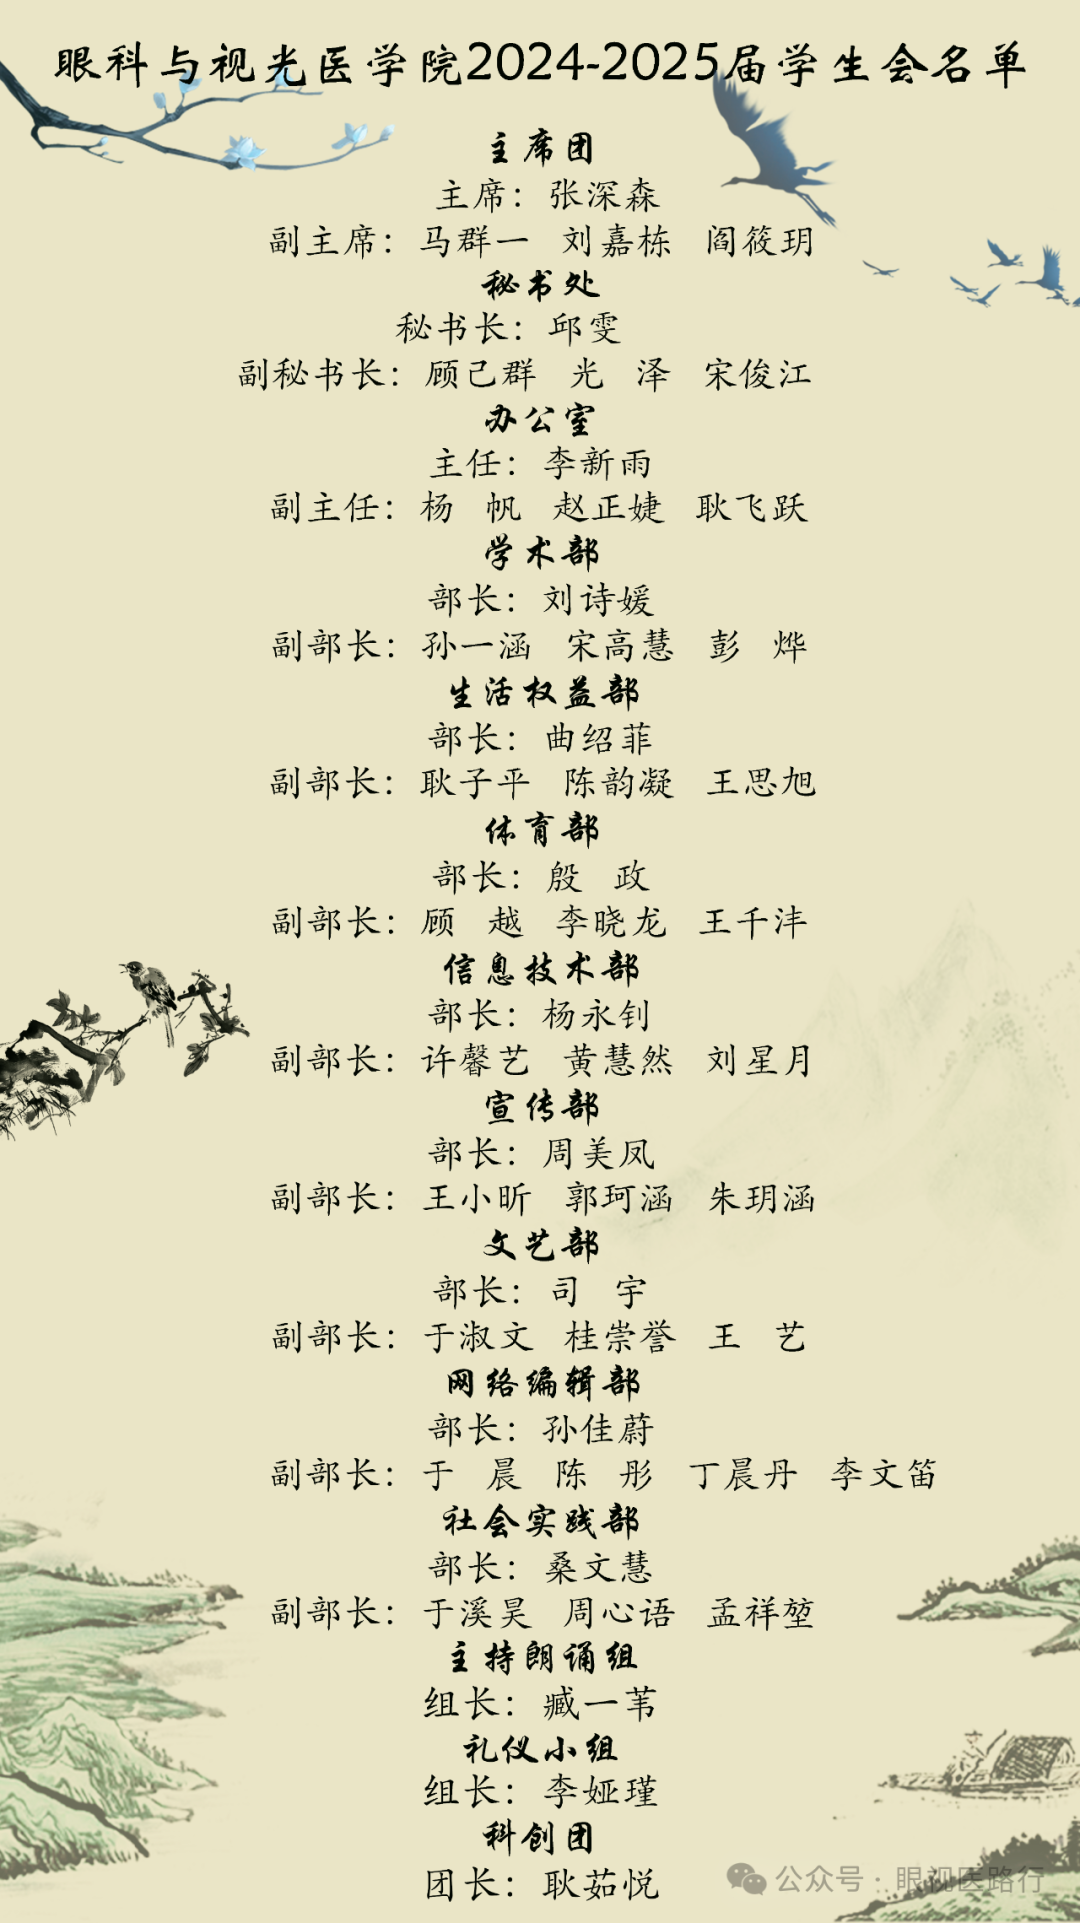 眼科与视光医学院2024-2025届学生会名单
主席团
主席：张深森
副主席：马群一 刘嘉栋 阎筱玥
秘书处
秘书长：邱雯
副秘书长：顾己群 光 泽 宋俊江
办公室
主任：李新雨
副主任：杨 帆 赵正婕 耿飞跃
学术部
部长：刘诗媛
副部长：孙一涵 宋高慧 彭 烨
生活权益部
部长：曲绍菲
副部长：耿子平 陈韵凝 王思旭
体育部
部长：殷 政
副部长：顾 越 李晓龙 王千沣
信息技术部
部长：杨永钊
副部长：许馨艺 黄慧然 刘星月
宣传部
部长：周美凤
副部长：王小昕 郭珂涵 朱玥涵
文艺部
部长：司 宇
副部长：于淑文 桂崇誉 王 艺
网络编辑部
部长：孙佳蔚
副部长：于 晨 陈 彤 丁晨丹 李文笛
社会实践部
部长：桑文慧
副部长：于溪昊 周心语 孟祥堃
主持朗诵组
组长：臧一苇
礼仪小组
组长：李娅瑾
科创团
团长：耿茹悦
公众号·眼视医路行